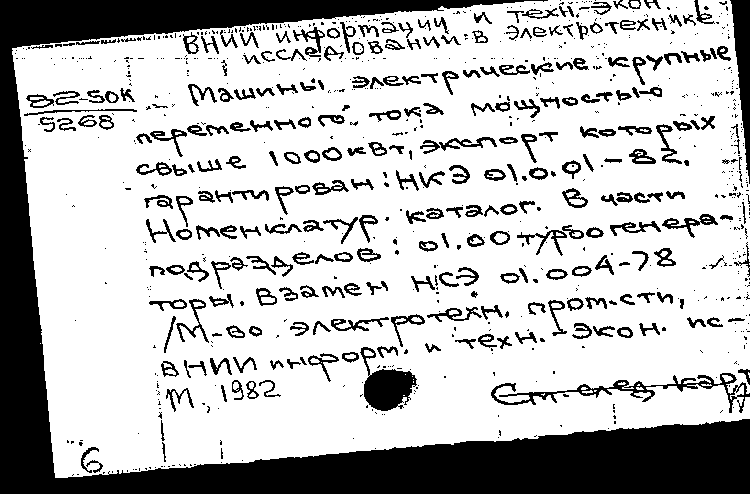 ВНИИ информации и техн.-экон.
исследований в электротехнике
82-50К
5268
Машины электрические крупные
переменного тока мощностью
свыше 1000 кВт, экспорт которых
гарантирован: НКЭ 01.0.01-82.
Номенклатур. каталог. В части
подразделов: 01.00 турбогенера-
торы. Взамен НСЭ 01.004-78
/М-во электротехн. пром-сти,
ВНИИ информ. и техн.-экон. ис-
М., 1982
См. след. карт
6